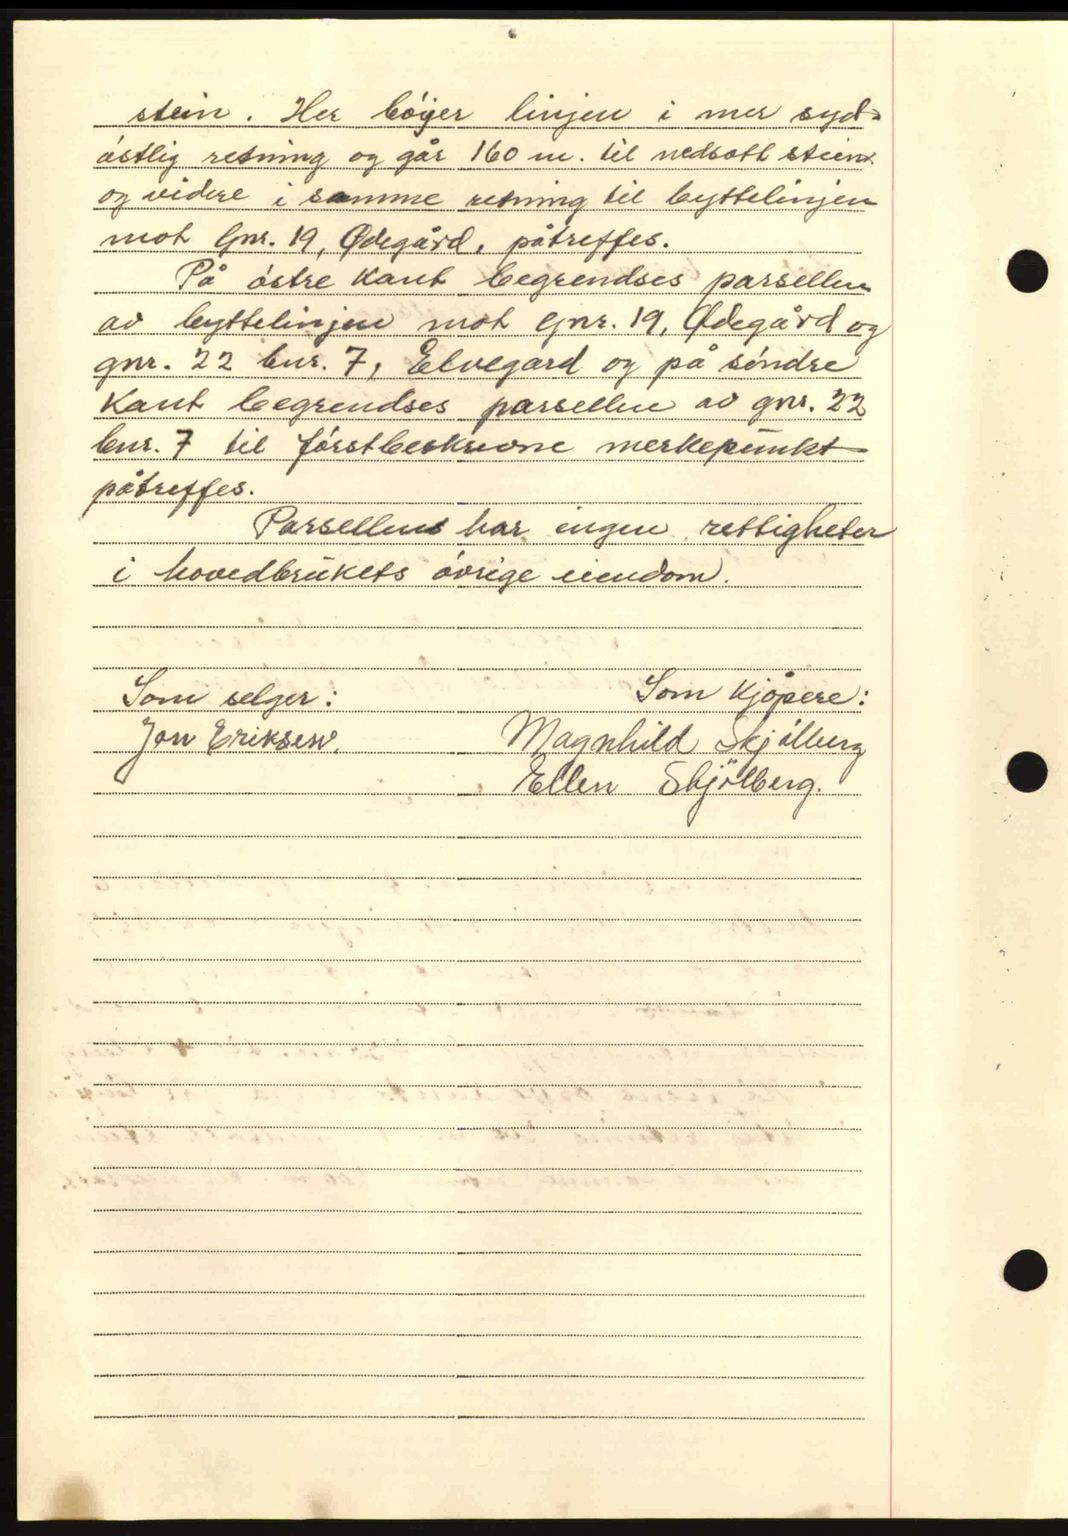 stein. Her bóyer linjen i mer syd-
óstlig retning og går 160 m. til nedsatt stein
og videre i samme retning til byttelinjen
mot Gnr. 19, Ødegård, påtreffes.
På óstre kant begrendses parsellen
av byttelinjen mot Gnr. 19, Ødegård og
gnr. 22 bnr. 7, Elvegard og på sóndre
kant begrendses parsellen av gnr. 22
bnr. 7 til fórstbeskrevne merkepunkt
påtreffes.
Parsellen har ingen rettigheter
i hovedbrukets óvrige eiendom.
Som selger:
Som kjópere:
Jon Eriksen.
Magnhild Skjólberg
Ellen Skjölberg.